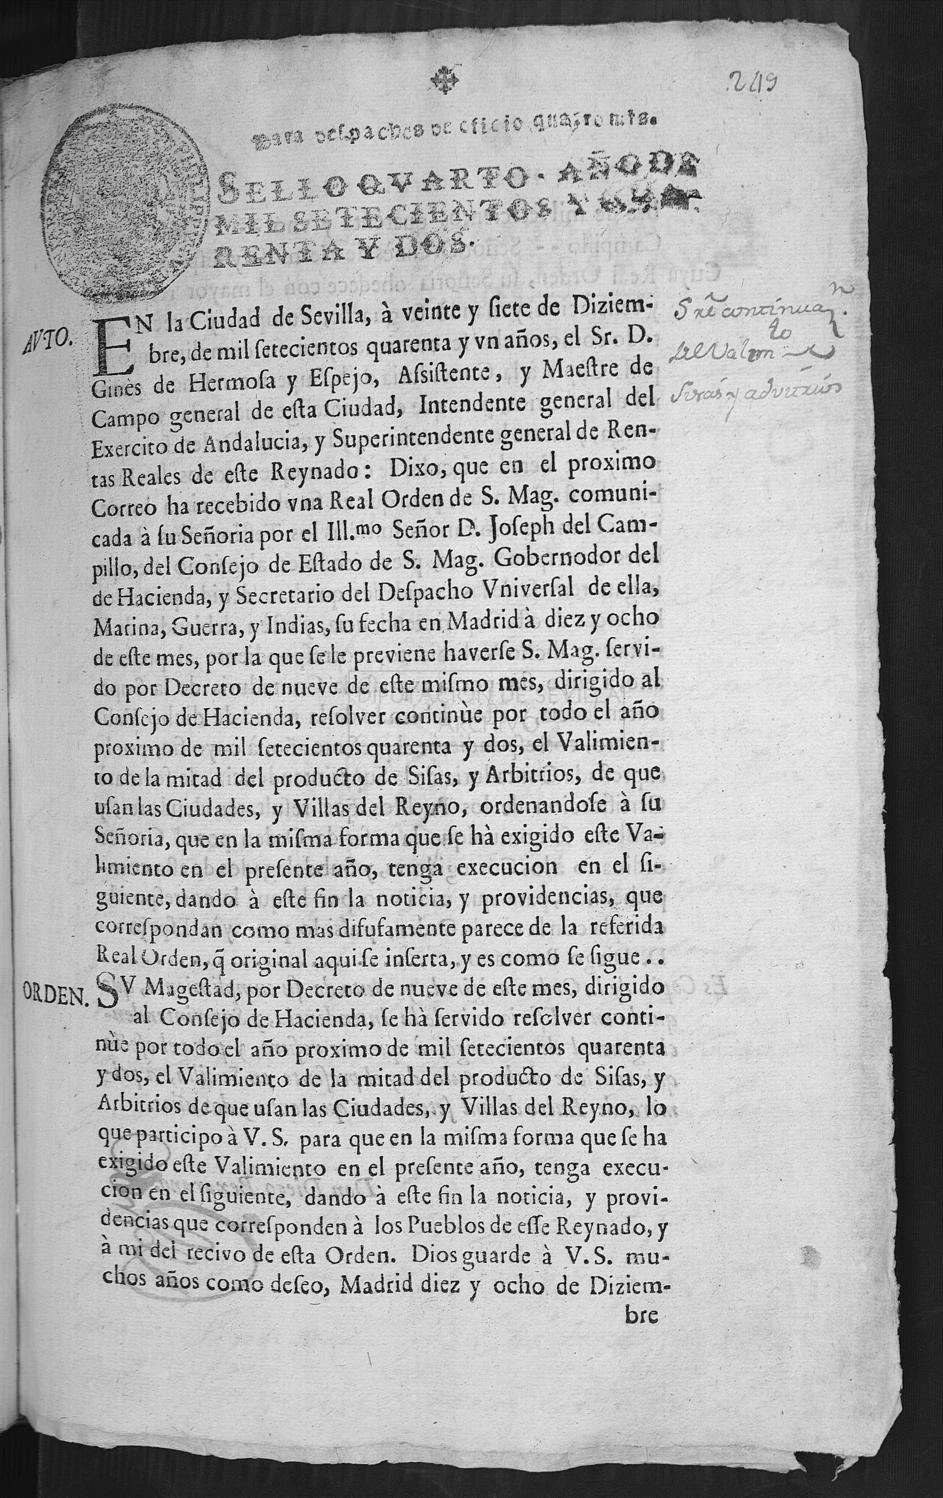 249
Para despachos de oficio quatro mrs.
SELLO QVARTO. AÑO DE
MIL SETECIENTOS Y QVA-
RENTA Y DOS.
AVTO.
EN la Ciudad de Sevilla, à veinte y siete de Diziem-
bre, de mil setecientos quarenta y vn años, el Sr. D.
Ginès de Hermosa y Espejo, Assistente, y Maestre de
Campo general de esta Ciudad, Intendente general del
Exercito de Andalucia, y Superintendente general de Ren-
tas Reales de este Reynado: Dixo, que en el proximo
Correo ha recebido vna Real Orden de S. Mag. comuni-
cada à su Señoria por el Ill.mo Señor D. Joseph del Cam-
pillo, del Consejo de Estado de S. Mag. Gobernodor del
de Hacienda, y Secretario del Despacho Vniversal de ella,
Marina, Guerra, y Indias, su fecha en Madrid à diez y ocho
de este mes, por la que se le previene haverse S. Mag. servi-
do por Decreto de nueve de este mismo mes, dirigido al
Consejo de Hacienda, resolver continùe por todo el año
proximo de mil setecientos quarenta y dos, el Valimien-
to de la mitad del producto de Sisas, y Arbitrios, de que
usan las Ciudades, y Villas del Reyno, ordenandose à su
Señoria, que en la misma forma que se hà exigido este Va-
limiento en el presente año, tenga execucion en el si-
guiente, dando à este fin la noticia, y providencias, que
correspondan como mas difusamente parece de la referida
Real Orden, q̃ original aqui se inserta, y es como se sigue..
ORDEN.
SV Magestad, por Decreto de nueve de este mes, dirigido
al Consejo de Hacienda, se hà servido resolver conti-
nùe por todo el año proximo de mil setecientos quarenta
y dos, el Valimiento de la mitad del producto de Sisas, y
Arbitrios de que usan las Ciudades, y Villas del Reyno, lo
que participo à V. S. para que en la misma forma que se ha
exigido este Valimiento en el presente año, tenga execu-
cion en el siguiente, dando à este fin la noticia, y provi-
dencias que corresponden à los Pueblos de esse Reynado, y
à mi del recivo de esta Orden. Dios guarde à V. S. mu-
chos años como deseo, Madrid diez y ocho de Diziem-
bre
Sre continuan
del Valim to
Sisas y advitrios